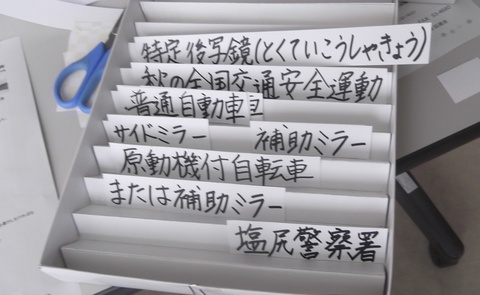 特定後写鏡(とくていこうしゃきょう)
秋の全国交通安全運動
普通自動車
サイドミラー 補助ミラー
原動機付自転車
または補助ミラー
塩尻警察署